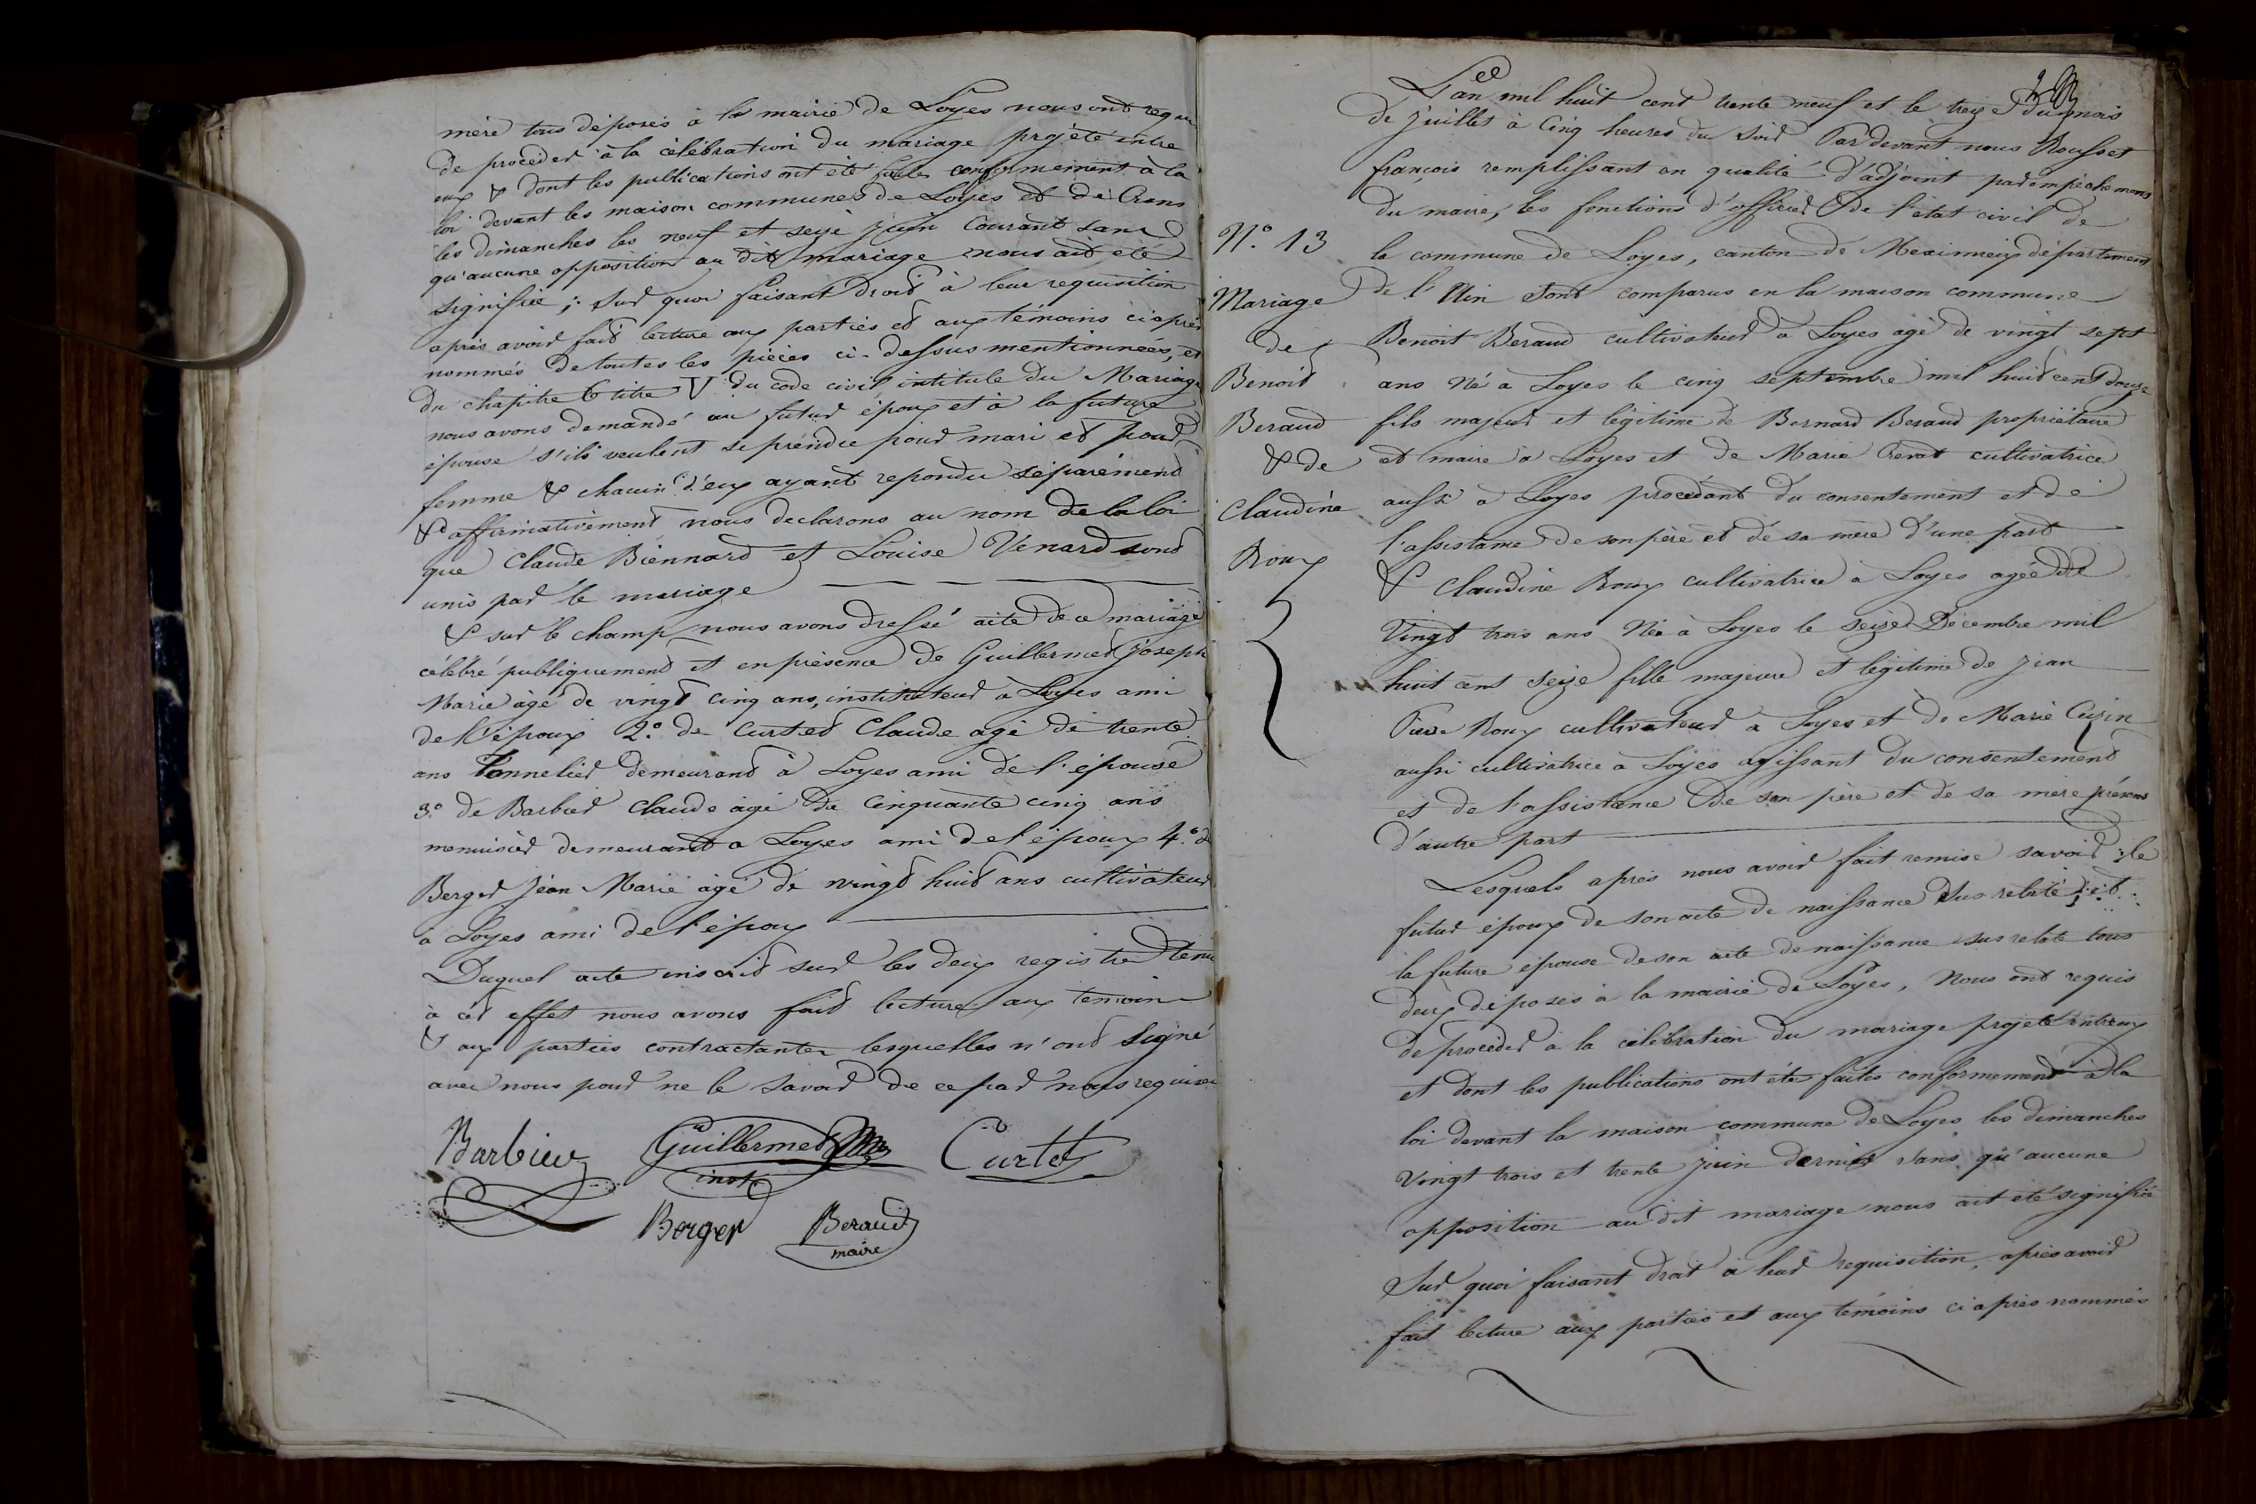 mère tous déposés à la mairie de Loyes nous ont requis
de procéder à la célébration du mariage projété entre
eux & dont les publications ont été faites conformement à la
loi devant les maison communes de Loyes et de Crans
les dimanches les neuf et seize juin courant sans
qu'aucune opposition au dit mariage nous ait été
signifiée ; sur quoi faisant droit à leur requisition
après avoir fait lecture aux parties et aux témoins ci après
nommés de toutes les pièces ci-dessus mentionnées, et
du chapitre 6 titre V du code civil intitulé du Mariage
nous avons demandé au futur époux et à la future
épouse s'ils veulent se prendre pour mari et pour
femme & chacun d'eux ayant repondu séparément
& affirmativement nous declarons au nom de la loi
que Claude Biennard et Louise Venard sont
unis par le mariage
& sur le champ nous avons dressé acte de ce mariage
célébré publiquement et en présence de Guillermet Joseph
Marie âgé de vingt cinq ans, instituteur à Loyes ami
de l'époux 2.º de Curtet Claude âgé de trente
ans Tonnelier demeurant à Loyes ami de l'épouse
3.º de Barbier Claude âgé de cinquante cinq ans
menuisier demeurant a Loyes ami de l'époux 4.º de
Berger Jean Marie âgé de vingt huit ans cultivateur
à Loyes ami de l'époux
Duquel acte inscrit sur les deux registre tenu
à cet effet nous avons fait lecture aux temoins
& aux parties contractantes lesquelles n'ont signé
avec nous pour ne le savoir de ce par nous requises
Barbier Guillermet Curtet
inst.
Berger Beraud
maire
L'an mil huit cent trente neuf et le treize du mois
de Juillet à Cinq heures du soir Par devant nous Rousset
françois remplissant en qualité d'adjoint par empêchement
du maire, les fonctions d'officier de l'état civil de
N.º 13
la commune de Loyes, canton de Meximieux département
Mariage
de l'Ain sont comparus en la maison commune
de
Benoit Beraud cultivateur à Loyes agé de vingt sept
Benoit
ans Né à Loyes le cinq septembre mil huit cent douze
Beraud
fils majeur et légitime de Bernard Beraud propriétaire
& de
et maire à Loyes et de Marie cultivatrice
Claudine
aussi à Loyes procédant du consentement et de
l'assistance de son père et de sa mère d'une part
Roux
& Claudine Roux cultivatrice à Loyes agée de
Vingt trois ans Née à Loyes le seize Décembre mil
huit cent seize fille majeure et légitime de Jean
Pierre Roux cultivateur à Loyes et de Marie Cusin
aussi cultivatrice à Loyes agissant du consentement
et de l'assistance de son père et de sa mère présens
d'autre part
Lesquels après nous avoir fait remise savoir ; le
futur époux de son acte de naissance sus relaté ; et
la future épouse de son acte de naissance sus relaté tous
deux déposés à la mairie de Loyes, Nous ont requis
de proceder a la célébration du mariage projeté entr'eux
et dont les publications ont été faites conformement à la
loi devant la maison commune de Loyes les dimanches
Vingt trois et trente juin dernier sans qu'aucune
opposition au dit mariage nous ait été signifiée
Sur quoi faisant droit à leur requisition, après avoir
fait lecture aux parties et aux témoins ci après nommés